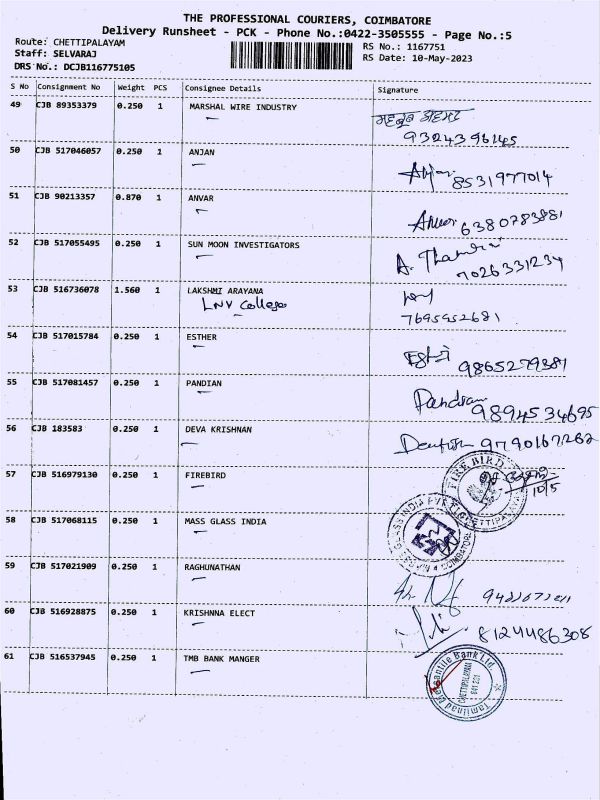 THE PROFESSIONAL COURIERS, COIMBATORE
Delivery Runsheet - PCK - Phone No.:0422-3505555 - Page No.:5
Route: CHETTIPALAYAM
Staff: SELVARAJ
DRS No.: DCJB116775105
RS No.: 1167751
RS Date: 10-May-2023
S No Consignment No Weight PCS Consignee Details Signature
49 CJB 89353379 0.250 1 MARSHAL WIRE INDUSTRY
9324396145
50 CJB 517046057 0.250 1 ANJAN
8531977014
51 CJB 90213357 0.870 1 ANVAR
6380783881
52 CJB 517055495 0.250 1 SUN MOON INVESTIGATORS
7026331234
53 CJB 516736078 1.560 1 LAKSHMI ARAYANA
LNV College
7695952681
54 CJB 517015784 0.250 1 ESTHER
9865279381
55 CJB 517081457 0.250 1 PANDIAN Pandian
9894534695
56 CJB 183583 0.250 1 DEVA KRISHNAN 9790167262
57 CJB 516979130 0.250 1 FIREBIRD
FIRE BIRD
CHETTIPALAYAM
10/5
58 CJB 517068115 0.250 1 MASS GLASS INDIA
GLASS INDIA PVT
COIMBATORE
59 CJB 517021909 0.250 1 RAGHUNATHAN
60 CJB 516928875 0.250 1 KRISHNNA ELECT 8124486308
61 CJB 516537945 0.250 1 TMB BANK MANGER
Tamilnad Mercantile Bank Ltd.
CHETTIPALAYAM
641 201